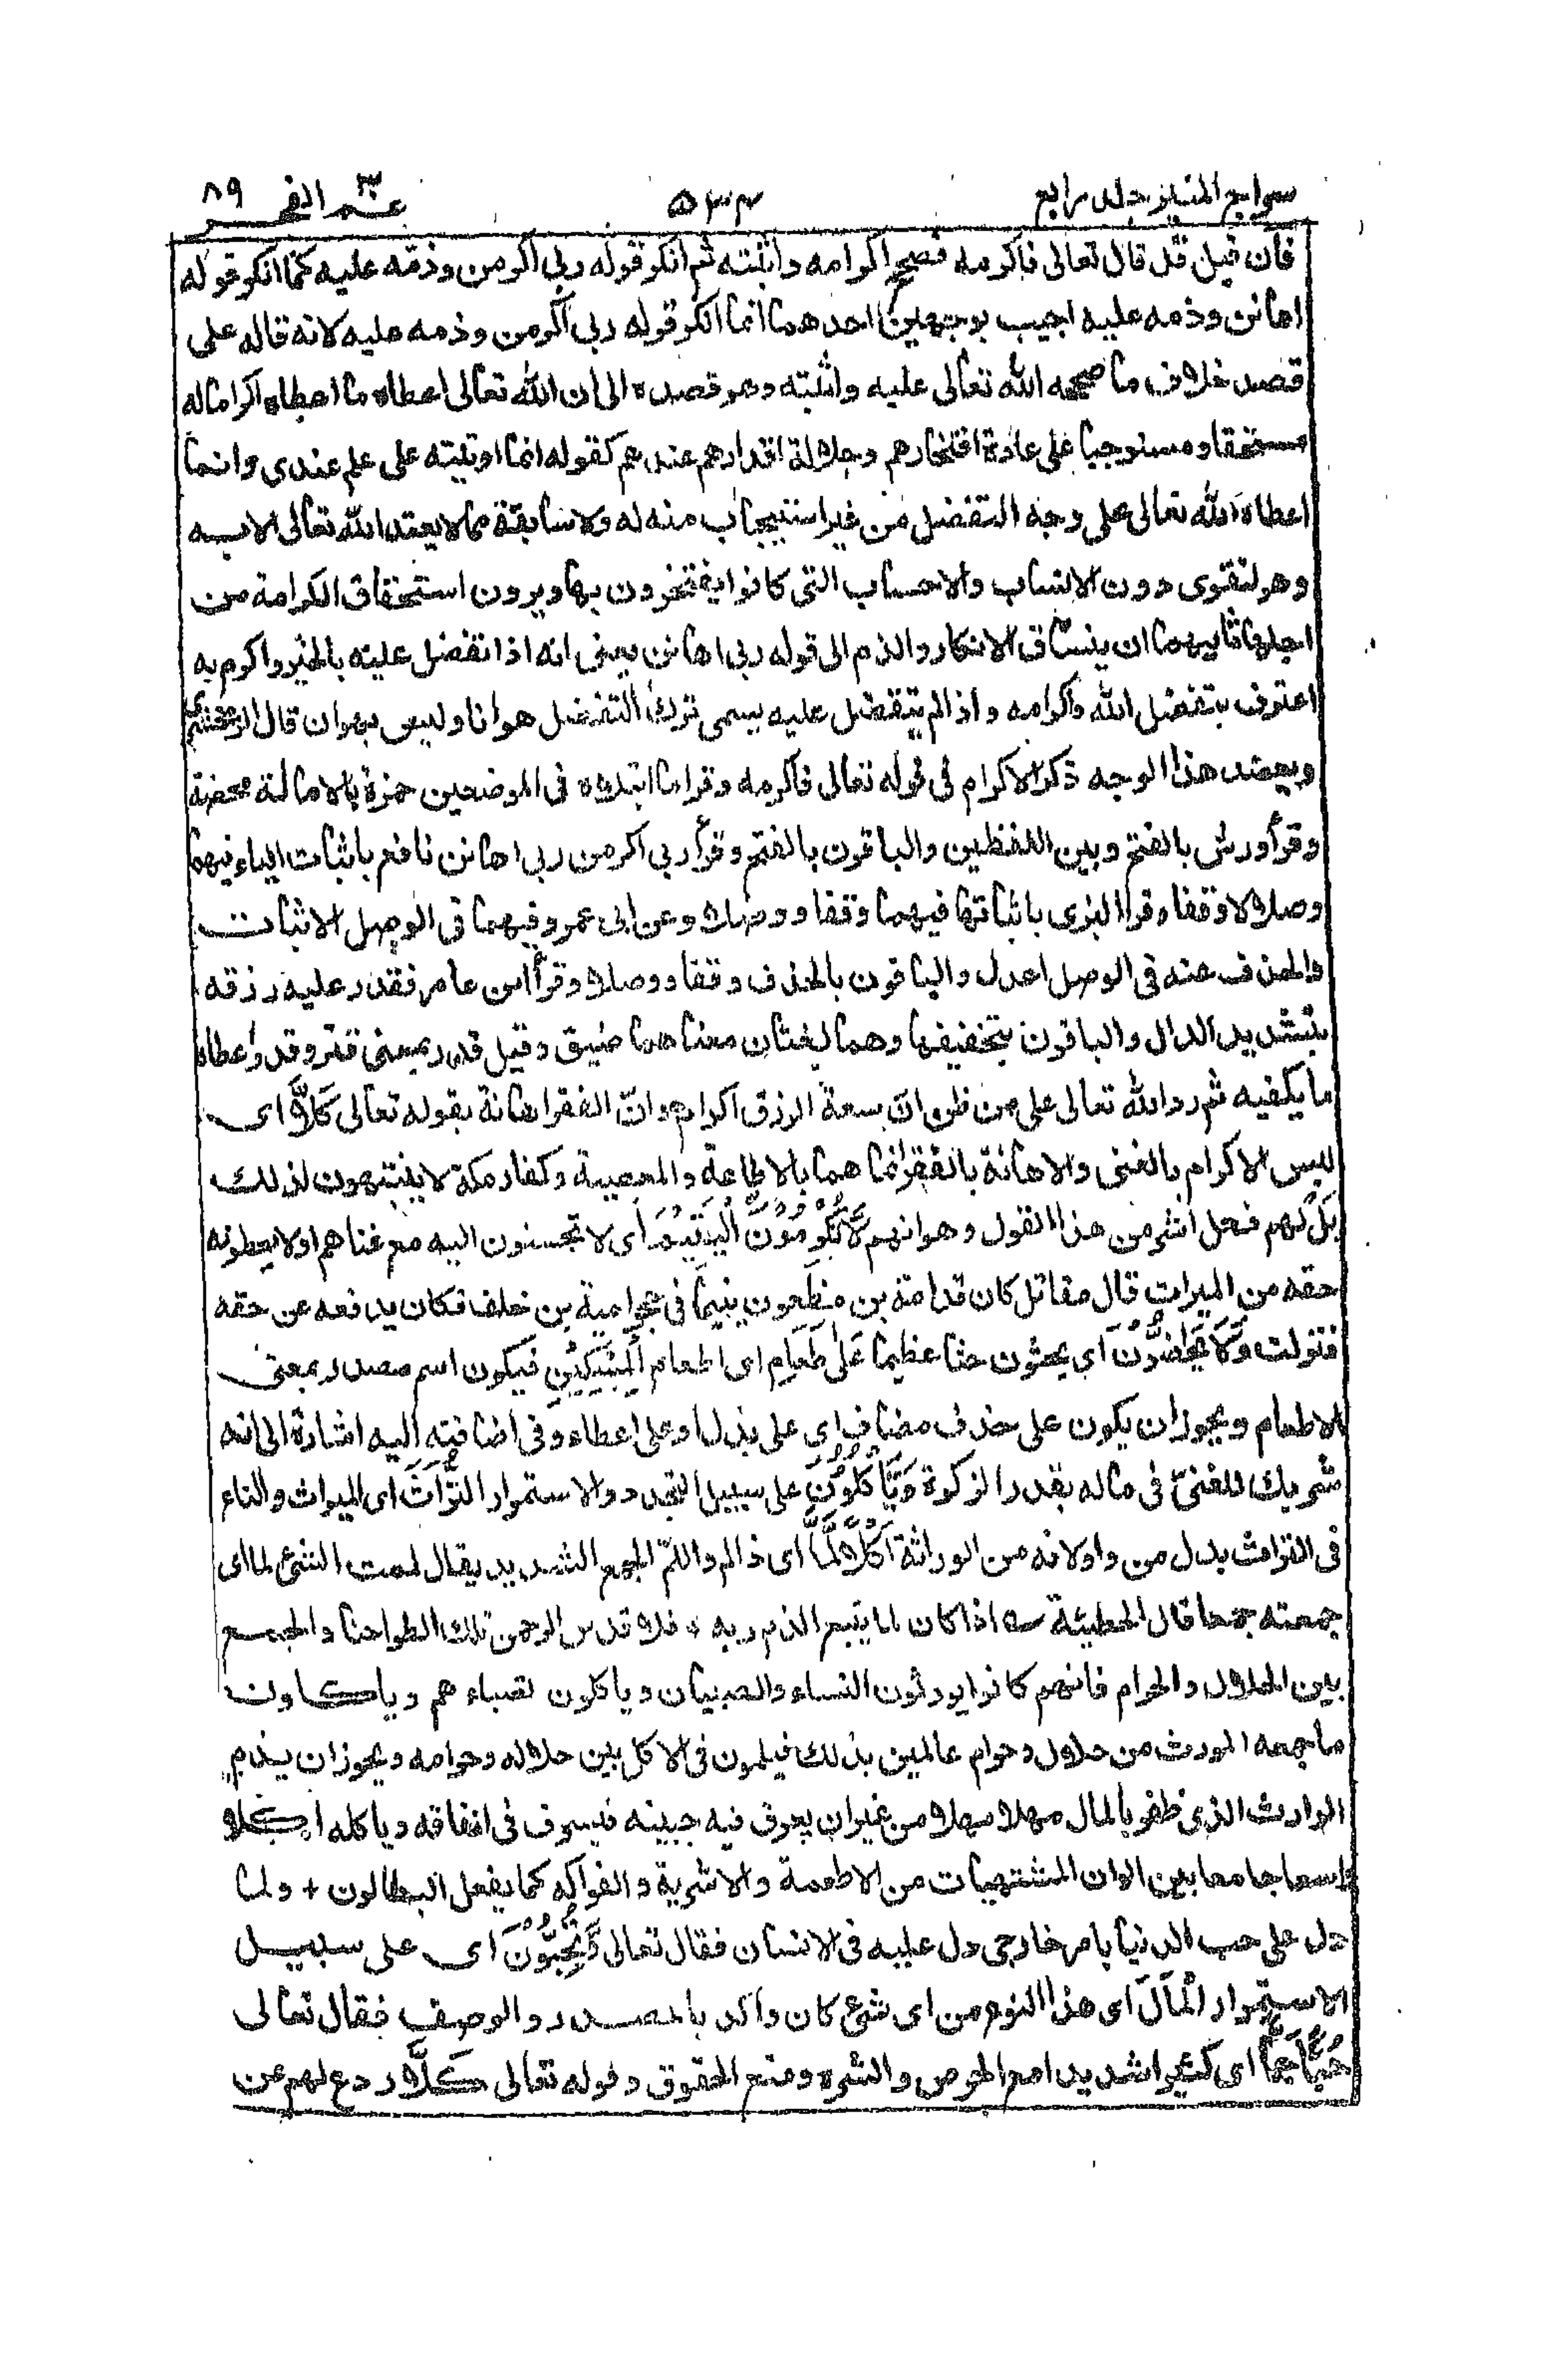 سراج المنير جلد رابع ٥٣٣ عم الفجر ٨٩
فان قيل قد قال تعالى فاكرمه فصحح اكرامه واثبته ثم انكر قوله ربي اكرمن وذمه عليه كما انكر قوله
اهانن وذمه عليه اجيب بوجهين احدهما انما انكر قوله ربي اكرمن وذمه عليه لانه قاله على
قصد خلاف ما صححه الله تعالى عليه واثبته وهو قصده الى ان الله تعالى اعطاه ما اعطاه اكراما له
مستحقا ومستوجبا على عادة افتخارهم وجلالة اقدارهم عندهم كقوله انما اوتيته على علم عندى وانما
اعطاه الله تعالى على وجه التفضل من غير استيجاب منه له ولا سابقة مما لا يعتد الله تعالى الا به
وهو لتقوى دون الانساب والاحساب التى كانوا يفتخرون بها ويرون استحقاق الكرامة من
اجلها ثانيهما ان ينساق الانكار والذم الى قوله ربى اهانن يعنى انه اذا تفضل عليه بالخير واكرم به
اعترف بتفضل الله واكرامه واذا لم يتفضل عليه يسمى ترك التفضل هوانا وليس بهوان قال الزمخشرى
ويعضد هذا الوجه ذكر الاكرام فى قوله تعالى فاكرمه وقرا ما ابتلاه فى الموضعين حمزة بالامالة محضة
وقرأ ورش بالفتح وبين اللفظين والباقون بالفتح وقرأ ربى اكرمن ربى اهانن نافع باثبات الياء فيهما
وصلا لا وقفا وقرا البزى باثباتها فيهما وقفا ووصلا وعن ابى عمرو فيهما فى الوصل الاثبات
والحذف عنه فى الوصل اعدل والباقون بالحذف وقفا ووصلا وقرأ ابن عامر فقدر عليه رزقه
بتشديد الدال والباقون بتخفيفها وهما لغتان معناهما ضيق وقيل قدر بمعنى قتر وقدر اعطاه
ما يكفيه ثم رد الله تعالى على من ظن ان سعة الرزق اكرام وانّ الفقر اهانة بقوله تعالى كَلَّا اى
ليس الاكرام بالغنى والاهانة بالفقر انما هما بالاطاعة والمعصية وكفار مكة لا ينتبهون لذلك
بَل لهم فعل اشر من هذا القول وهو انهم لَّا تُكْرِمُوْنَ الْيَتِيْمَ اى لا تحسنون اليه مع غناهم او لا يعطونه
حقه من الميراث قال مقاتل كان قدامة بن مظعون يتيما فى حجر امية بن خلف فكان يدفعه عن حقه
فنزلت وَلَا تَحٰضُّوْنَ اى يحثون حثا عظيما عَلٰى طَعَامِ اى اطعام الْمِسْكِيْنِ فيكون اسم مصدر بمعنى
الاطعام ويجوز ان يكون على حذف مضاف اى على بذل او على اعطاء وفى اضافته اليه اشارة الى انه
شريك للغنىّ فى ماله بقدر الزكوة وَتَأْكُلُوْنَ على سبيل التجدد والاستمرار التُّرَاثَ اى الميراث والتاء
فى التراث بدل من واو لانه من الوراثة اَكْلًا لَّمًّا اى ذا لم واللمّ الجمع الشديد يقال لممت الشئ لما اى
جمعته جمعا قال الحطيئة اذا كان لما يتبع الذم ربه ٭ فلا قدس الرحمن تلك الطواحنا والجمع
بين الحلال والحرام فانهم كانوا يورثون النساء والصبيان وياكلون نصباءهم وياكلون
ما جمعه المورث من حلال وحرام عالمين بذلك فيلمون فى الاكل بين حلاله وحرامه ويجوز ان يذم
الوارث الذى ظفر بالمال مهلا سهلا من غير ان يعرق فيه جبينه فيسرف فى انفاقه وياكله اكلا
واسعا جامعا بين الوان المشتهيات من الاطعمة والاشربة والفواكه كما يفعل البطالون + ولما
دل على حب الدنيا بامر خارجى دل عليه فى الانسان فقال تعالى وَتُحِبُّوْنَ اى على سبيل
الاستمرار الْمَالَ اى هذا النوع من اى شئ كان واكد بالمصدر والوصف فقال تعالى
حُبًّا جَمًّا اى كثيرا شديدا مع الحرص والشره ومنع الحقوق وقوله تعالى كَلَّا ردع لهم عن